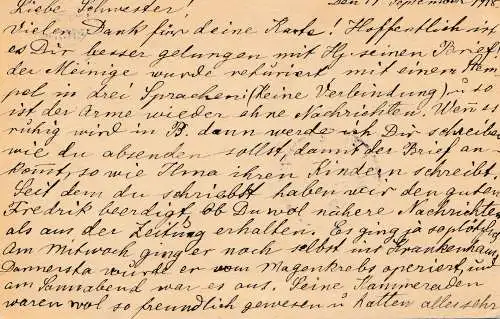 Liebe Schwester! Den 17 September 1918
Vielen Dank für deine Karte! Hoffentlich ist
es Dir besser gelungen mit Hj. seinen Brief
der Meinige wurde returiert mit einem Stem-
pel in drei Sprachen: (Keine Verbindung) u so
ist der Arme wieder ohne Nachrichten. Wenn es
ruhig wird in B. dann werde ich Dir schreiben
wie du absenden sollst, damit der Brief an-
kom̄t, so wie Ilma ihren Kindern schreibt.
Seit dem du schriebst haben wir den guten
Fredrik beerdigt, ob Du wol nähere Nachrichten
als aus der Zeitung erhalten. Es ging ja so plötzlich
am Mitwoch ging er noch selbst ins Krankenhaus,
Dannersta wurde er vom Magenkrebs operiert, und
am Sonnabend war es aus. Seine Kammeraden
waren wol so freundlich gewesen u hatten alles sehr